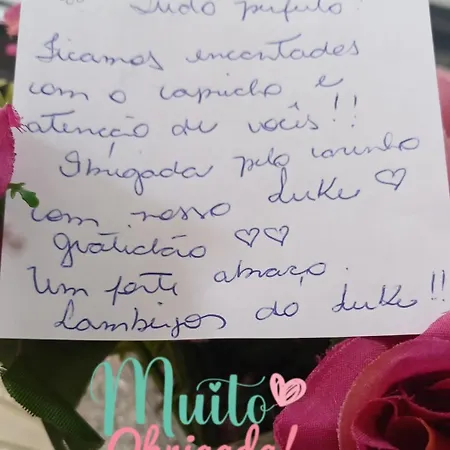 Tudo perfeito!
Ficamos encantados
com o capricho e
atenção de vocês!!
Obrigada pelo carinho
com nosso Luke ♡
gratidão ♡♡
Um forte abraço.
Lambeijos do Luke!!
Muito
Obrigada!